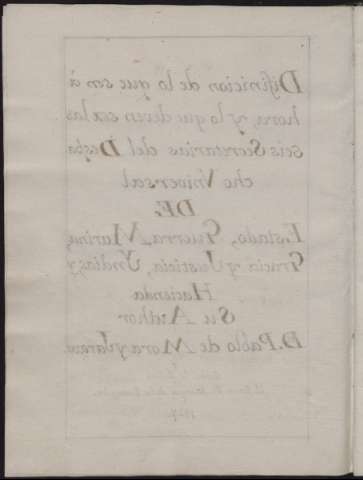 Difinicion de lo que son à
hora, y lo que deven ser las
seis Secretarias del Despa
cho Vniversal
DE,
Estado, Guerra, Marina,
Gracia y Justicia, Yndias, y
Hacienda
Su Author
D. Pablo de Mora y Jaraba